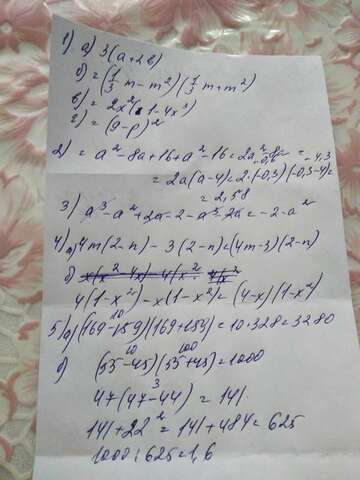 1) а) 3(a+2b)
б) = (1/3 m - m²)(1/3 m + m²)
в) = 2x²(1-4x³)
г) = (9-p)²
2) = a²-8a+16+a²-16 = 2a²-8a = 
= 2a(a-4) = 2·(-0,3)(-0,3-4) =
= 2,58
3) a³-a²+2a-2-a³-2a = -2-a²
4) а) 4m(2-n) - 3(2-n) = (4m-3)(2-n)
б)
4(1-x²) - x(1-x²) = (4-x)(1-x²)
5) а) (169-159)(169+159) = 10·328 = 3280
10
б) (55-45)(55+45) = 1000
10 100
47(47-44) = 141
3
141+22² = 141+484 = 625
1000:625 = 1,6